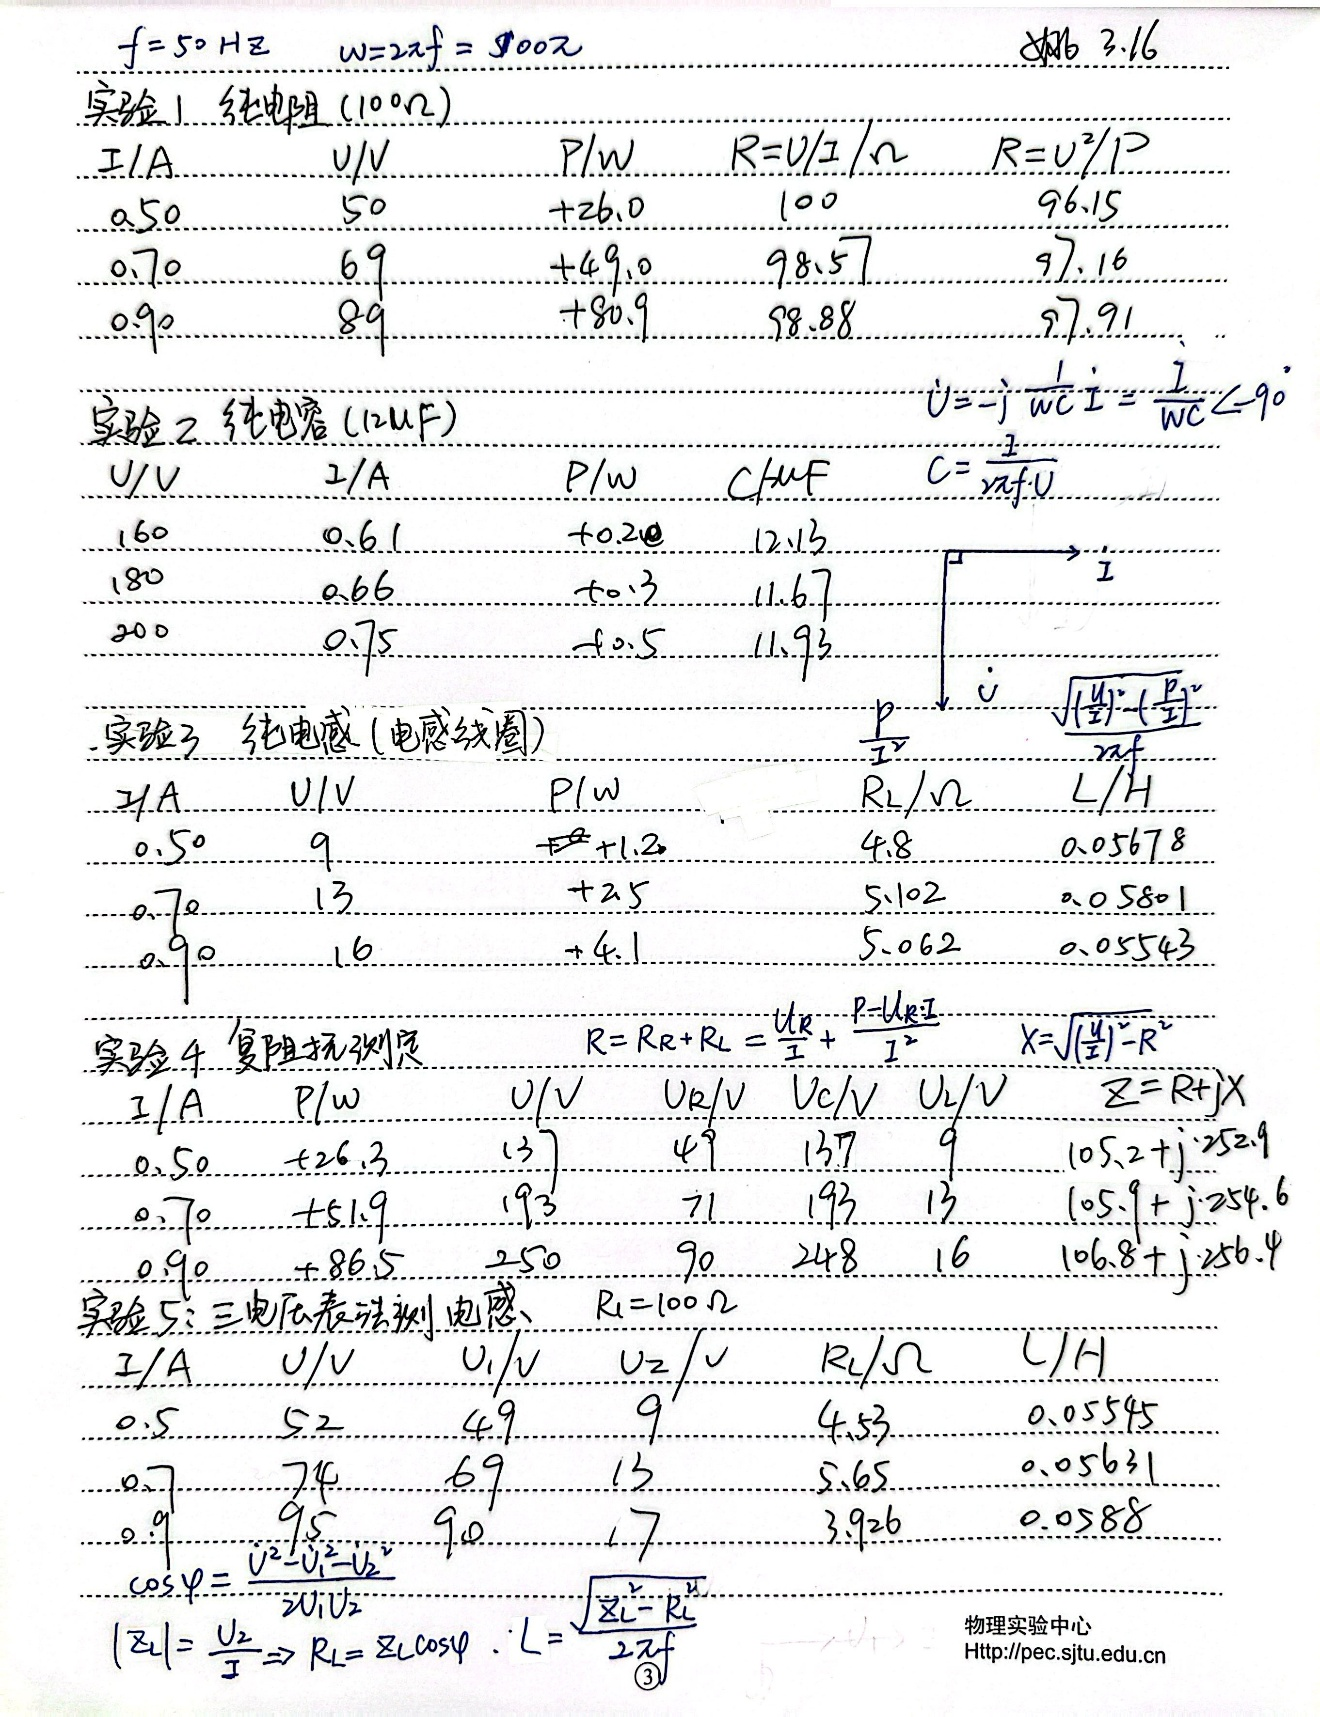 f=50HZ w=2πf=100π 3.16
实验1 纯电阻(100Ω)
I/A U/V P/W R=U/I/Ω R=U²/P
0.50 50 +26.0 100 96.15
0.70 69 +49.0 98.57 97.16
0.90 89 +80.9 98.88 97.91
U̇=-j 1/WC İ = İ/WC ∠-90°
实验2 纯电容(12uF)
C=I/2πf·U
U/V I/A P/W C/uF
160 0.61 +0.20 12.13
180 0.66 +0.3 11.67
200 0.75 +0.5 11.93
İ
U̇
实验3 纯电感(电感线圈) P/I² √((U/I)²-(P/I²)²)/2πf
I/A U/V P/W RL/Ω L/H
0.50 9 +1.2 4.8 0.05678
0.70 13 +2.5 5.102 0.05801
0.90 16 +4.1 5.062 0.05543
实验4 复阻抗测定 R=RR+RL=UR/I+(P-UR·I)/I² X=√((U/I)²-R²)
I/A P/W U/V UR/V UC/V UL/V Z=R+jX
0.50 +26.3 137 49 137 9 105.2+j·252.9
0.70 +51.9 193 71 193 13 105.9+j·254.6
0.90 +86.5 250 90 248 16 106.8+j·256.4
实验5:三电压表法测电感、 R1=100Ω
I/A U/V U1/V U2/V RL/Ω L/H
0.5 52 49 9 4.53 0.05545
0.7 74 69 13 5.65 0.05631
0.9 95 90 17 3.926 0.0588
cosφ=(U²-U1²-U2²)/2U1U2
|ZL|=U2/I⇒RL=ZLcosφ. L=√(ZL²-RL²)/2πf
物理实验中心
Http://pec.sjtu.edu.cn
③